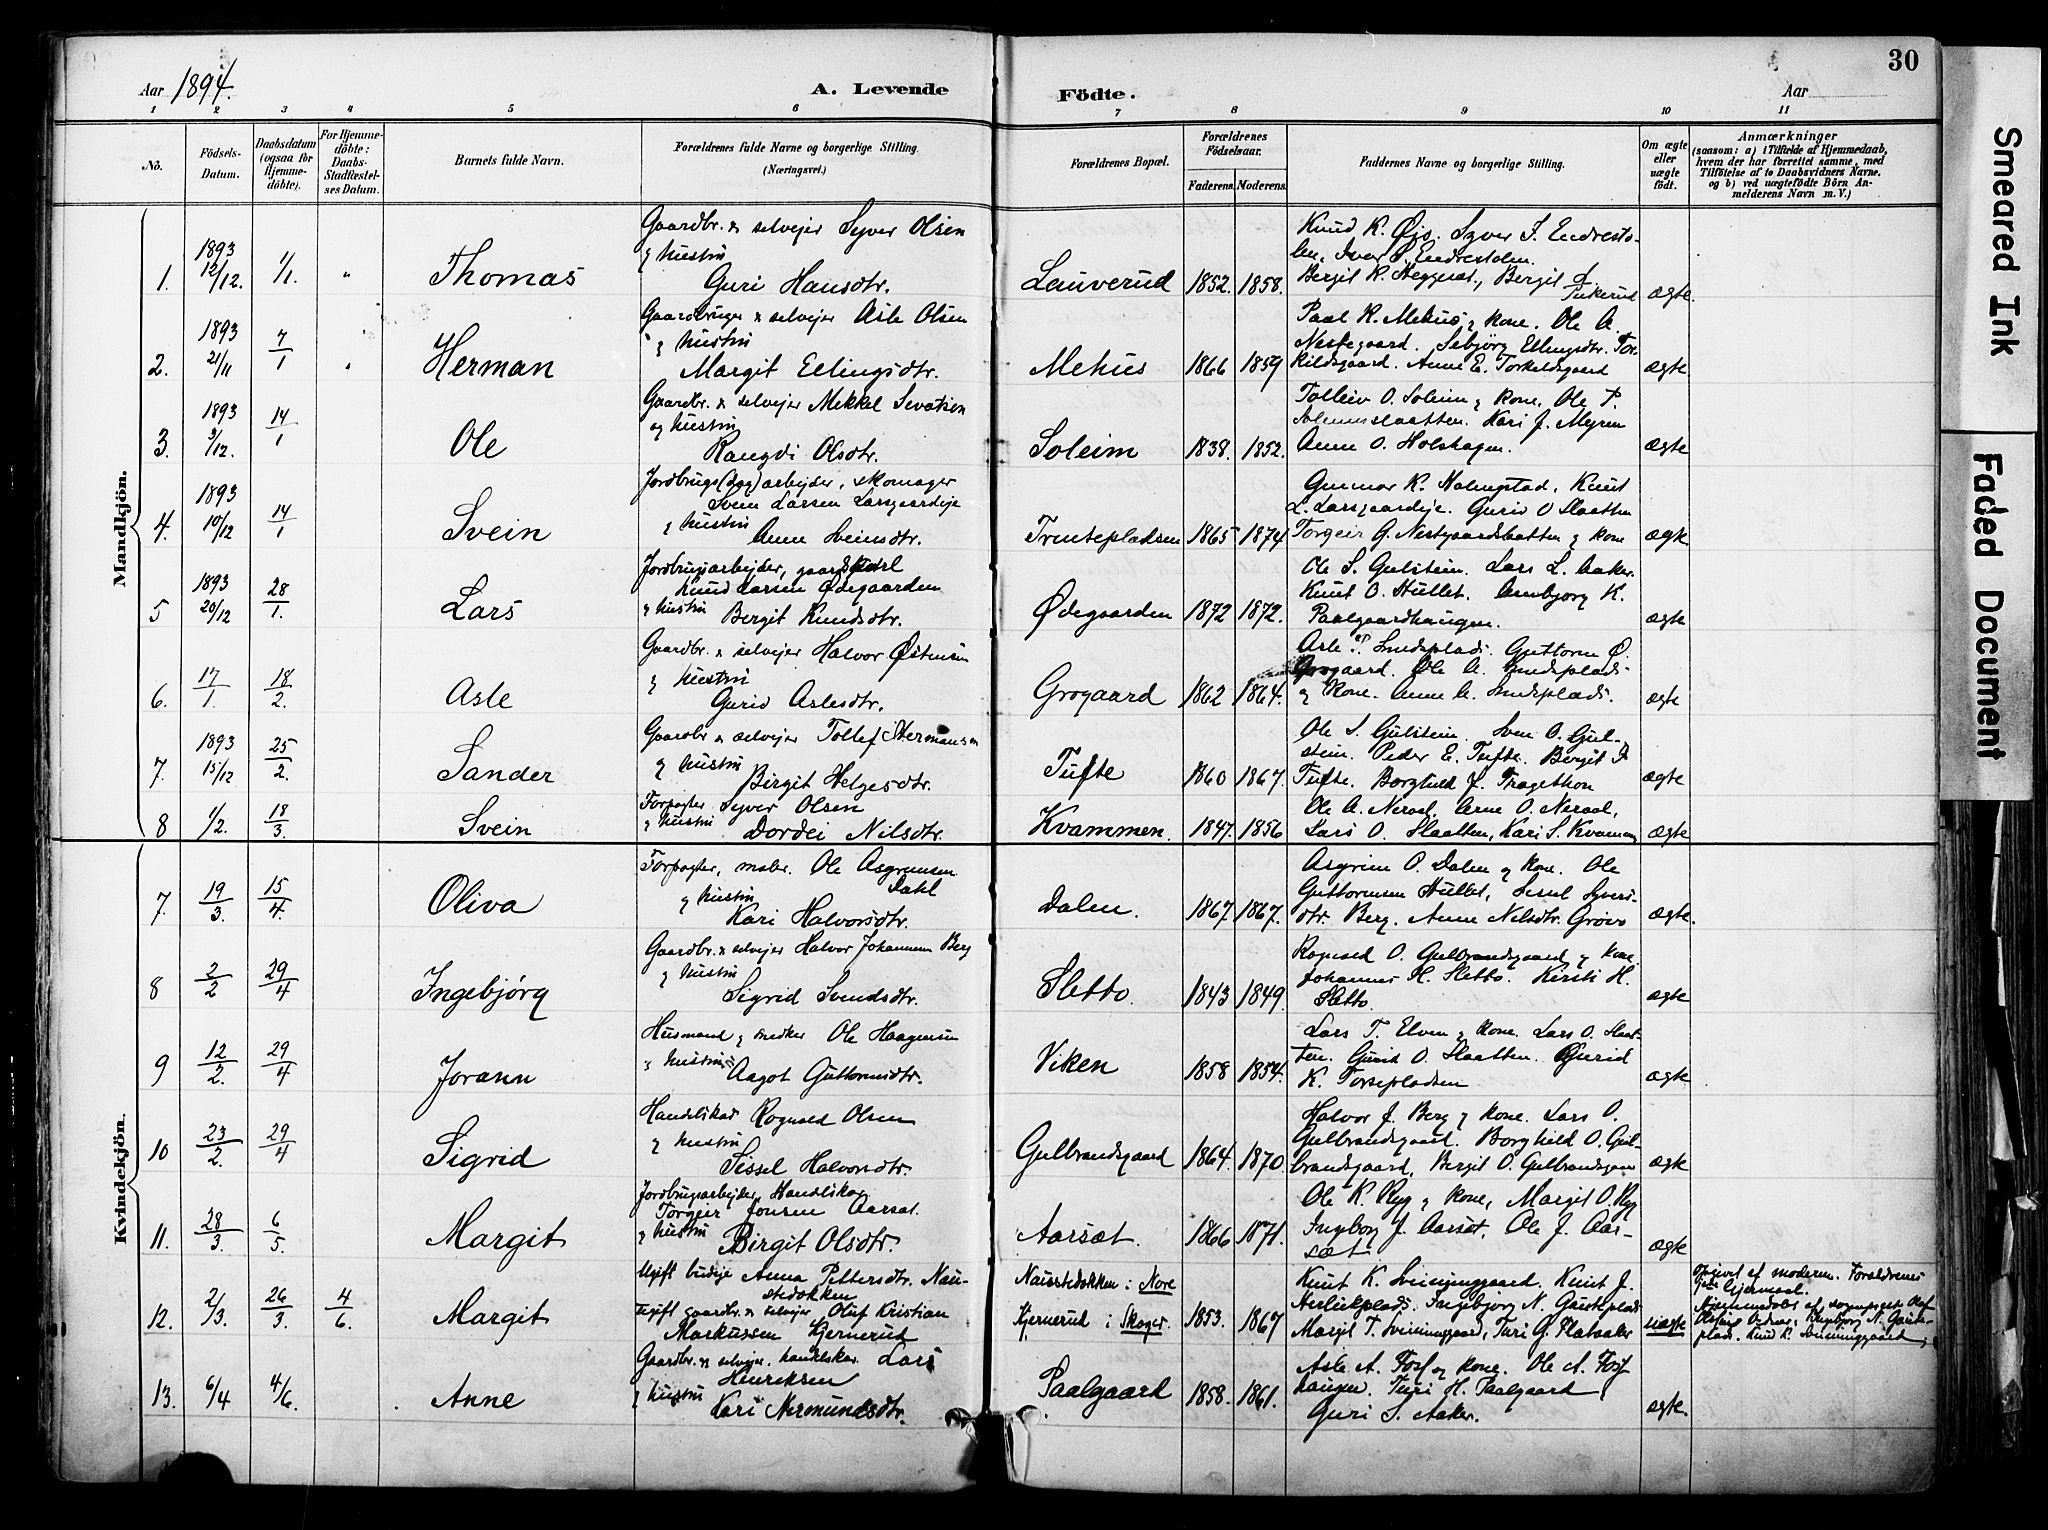 30
Aar 1894.
A. Levende Födte.
Aar
1 2 3 4 5 6 7 8 9 10 11
No.
Födsels-Datum.
Daabsdatum (ogsaa for Hjemmedöbte).
For Hjemmedöbte: Daabs-Stadfæstelses Datum.
Barnets fulde Navn.
Forældrenes fulde Navne og borgerlige Stilling. (Næringsvei.)
Forældrenes Bopæl.
Forældrenes Födselsaar.
Faderens. Moderens.
Faddernes Navne og borgerlige Stilling.
Om ægte eller uægte født.
Anmærkninger
(saasom: a) i Tilfælde af Hjemmedaab, hvem der har forrettet samme, med Tilföielse af to Daabsvidners Navne, og b) ved uægtefödte Börn Anmelderens Navn m. V.)
Mandkjön.
1. 1893 12/12. 1/1. " Thomas
Gaardbr. & selveier Syver Olsen
g hustru
Guri Hansdtr.
Lauverud 1852. 1858.
Knud K. Øjo. Syver I. Endresto-
len, Iver O. Endrestolen.
Bergit K. Heggerat., Bergit
ægte.
2. 1893 21/11 7/1 " Herman
Gaardbruger & selvejer Asle Olsen
g hustru
Margit Ellingsdtr.
Mehus 1866 1859
Paal K. Mehus g kone. Ole A.
Nestegaard. Sebjørg Ellingsdtr. Tor-
kildsgaard. Anne E. Torkildsgaard
ægte
3. 1893 3/12. 14/1 Ole
Gaardbr. & selvejer Mekkel Sevatsen
og hustru
Rangdi Olsdtr.
Soleim 1838. 1852.
Tolleiv O. Soleim g kone. Ole T.
Soleimsslaatten. Kari J. Myren
Anne O. Holshagen.
ægte
4. 1893 10/12 14/1 Svein
Jordbrugs(dag)arbejder, skomager
Sven Larsen Larsgaardeje
g hustru
Anne Sveinsdtr.
Trutepladsen 1865 1874
Gunnar K. Holmstad, Knut
L. Larsgaardeje. Gurid O Slaatten
Torgeir G. Nestgaardslaatten g kone
ægte.
5 1893 20/12 28/1. Lars
Jordbrugsarbejder, gaardskarl
Knud Larsen Ødegaarden
g hustru
Bergit Knudsdtr.
Ødegaarden 1872 1872.
Ole S. Gulstein. Lars L. Aaker.
Knut O. Hullet. Annbjørg K.
Paalgaardhaugen.
ægte
6. 17/1. 18/2. Asle
Gaardbr. & selvejer Halvor Østensen
g hustru
Gurid Aslesdtr.
Grogaard 1862 1864.
Asle P. Sundsplads. Guttorm Ø.
Grogaard. Ole A. Sundsplads
g kone. Anne A. Sundsplads.
ægte
7. 1893 15/12 25/2. Sander
Gaardbr & selvejer Tollef Hermansen
g hustru
Birgit Helgesdtr.
Tufte 1860 1867
Ole S. Gulstein. Sven O. Gul-
stein. Peder E. Tufte. Birgit P
Tufte. Borghild J. Tragethon
ægte
8 1/2. 18/3. Svein
Forpagter Syver Olsen
g hustru Dordei Nilsdtr.
Kvammen. 1847. 1856
Ole A. Neraal, Arne O. Neraal,
Lars O. Slaatten, Kari S. Kvammen
ægte
Kvindekjön.
7. 19/3. 15/4. Oliva
Forpagter, maler. Ole Asgrimsen
Dahl
g hustru
Kari Halvorsdtr.
Dalen. 1867 1867.
Asgrim O. Dalen g kone. Ole
Guttormsen Hullet, Sissel Syvers-
dtr. Berg. Anne Nilsdtr. Grøvo
ægte.
8 2/2 29/4 Ingebjørg
Gaardbr. & selvejer Halvor Johannesen Berg
g hustru
Sigrid Svendsdtr.
Sletto. 1843 1849
Rognald O. Gulbrandsgaard g kone
Johannes H. Sletto. Kirsti H.
Sletto.
ægte
9 12/2. 29/4 Jorann
Husmand g snedker Ole Haagensen
g hustru
Aagot Guttormsdtr.
Viken 1858 1854.
Lars T. Elven g kone. Lars O. Slaat-
ten. Gurid O. Slaatten. Gurid
K. Torsepladsen
ægte
10 23/2. 29/4 Sigrid
Handelskar Rognald Olsen
g hustru
Sissel Halvorsdtr.
Gulbrandsgaard 1864. 1870.
Halvor J. Berg g kone. Lars O.
Gulbrandsgaard. Borghild O. Gul-
brandsgaard, Birgit O. Gulbrandsgaard
ægte
11. 28/3. 6/5. Margit
Jordbrugsarbejder, Handelskar
Torgeir Jonsen Aarsæt
g hustru Birgit Olsdtr.
Aarsæt. 1866 1871.
Ole K. Ryg g kone, Margit O. Ryg
Ingeborg J. Aarsæt. Ole J. Aar-
sæt.
ægte
12. 2/3. 26/3. 4/6. Margit
Ugift budeje Anna Pettersdtr. Nau-
stedokken
Ugift gaardbr. & selvejer Oluf Kristian
Markussen Kjernerud
Naustedokken i Nore
Kjernerud i Skoger. 1853. 1867
Knut K. Sviningsgaard. Knut J.
Herleikplads. Ingebjørg N. Gauteplads
Margit T. Sviningsgaard, Turi G. Flatsaker
uægte
Opgivet af moderen. Forældrenes
Hjemmedøbt af
Ingebjørg N. Gaute-
plads. Knud K. Sviningsgaard
13. 6/4 4/6. Anne
Gaardbr. & selvejer. handelskar. Lars
Henriksen
g hustru
Kari Nermundsdtr.
Paalgaard 1858. 1861.
Asle A. Foss g kone. Ole A. Foss
haugen. Turi H. Paalgaard
Guri S. Aaker.
ægte.
Smeared Ink
Faded Document